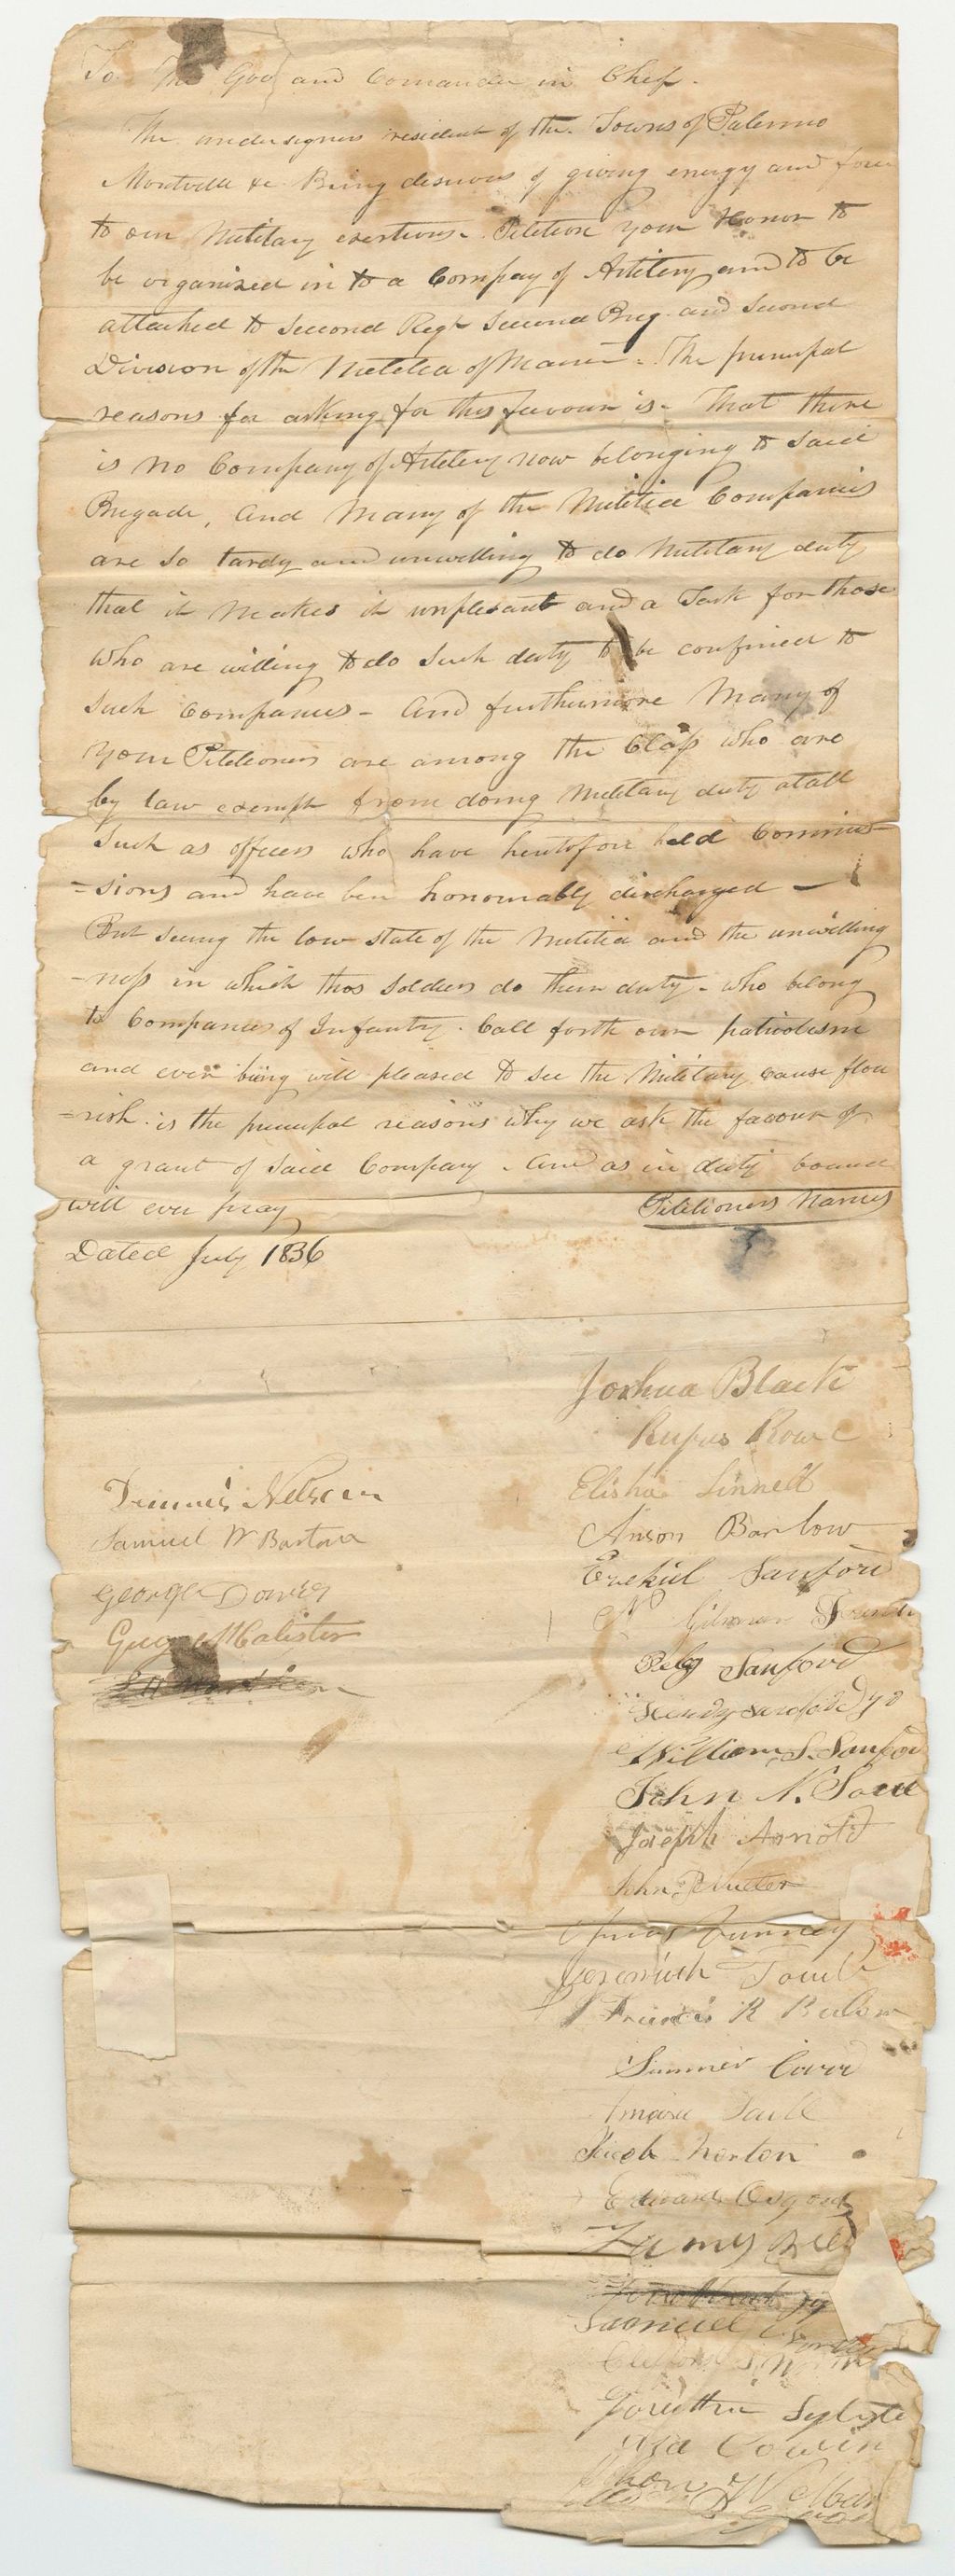 To The Gov and Comander in Chief.
The undersigners resident of the Towns of Palermo
Montville &c Being desirous of giving energy and force
to our Military exertions - Petition your Honor to
be organized in to a Compay of Artilery and to be
attached to Second Regt Second Brig and Second
Division of the Militia of Maine - The principal
reasons for asking for this favour is - That there
is no Company of Artilery now belonging to said
Brigade, and Many of the Militia Companies
are so tardy and unwilling to do Military duty
that it makes it unplesant and a Task for those
who are willing to do such duty to be confined to
such companies - And furthermore Many of
your Petitioners are among the Class who are
by law exempt from doing Military duty atall
such as officers who have heretofore held Commis-
-sions and have ben honourably discharged -
But seeing the low state of the Militia and the unwilling
-ness in which thos soldiers do their duty - who belong
to Companies of Infantry. Call forth our patriotism
and ever being well pleased to see the Military cause flou
=rish. is the principal reasons why we ask the favour of
a grant of said Company - And as in duty bound
will ever pray
Petitioners Names
Dated July 1836
Joshua Black
Rufus Rowe
Elisha Linnell
Anson Barlow
Ezekiel Sanford
Gilman
Pelg Sanford
William S. Sanfor
John N.
Joseph Arnold
John
Jeremiah Towle
Francis R
Sumner Carr
Towle
Jacob Norton
Edward Osgood
James
Samuel
Sylveste
Cowin
Dennis Nelson
Samuel W Barton
George Dowes
George McAlister